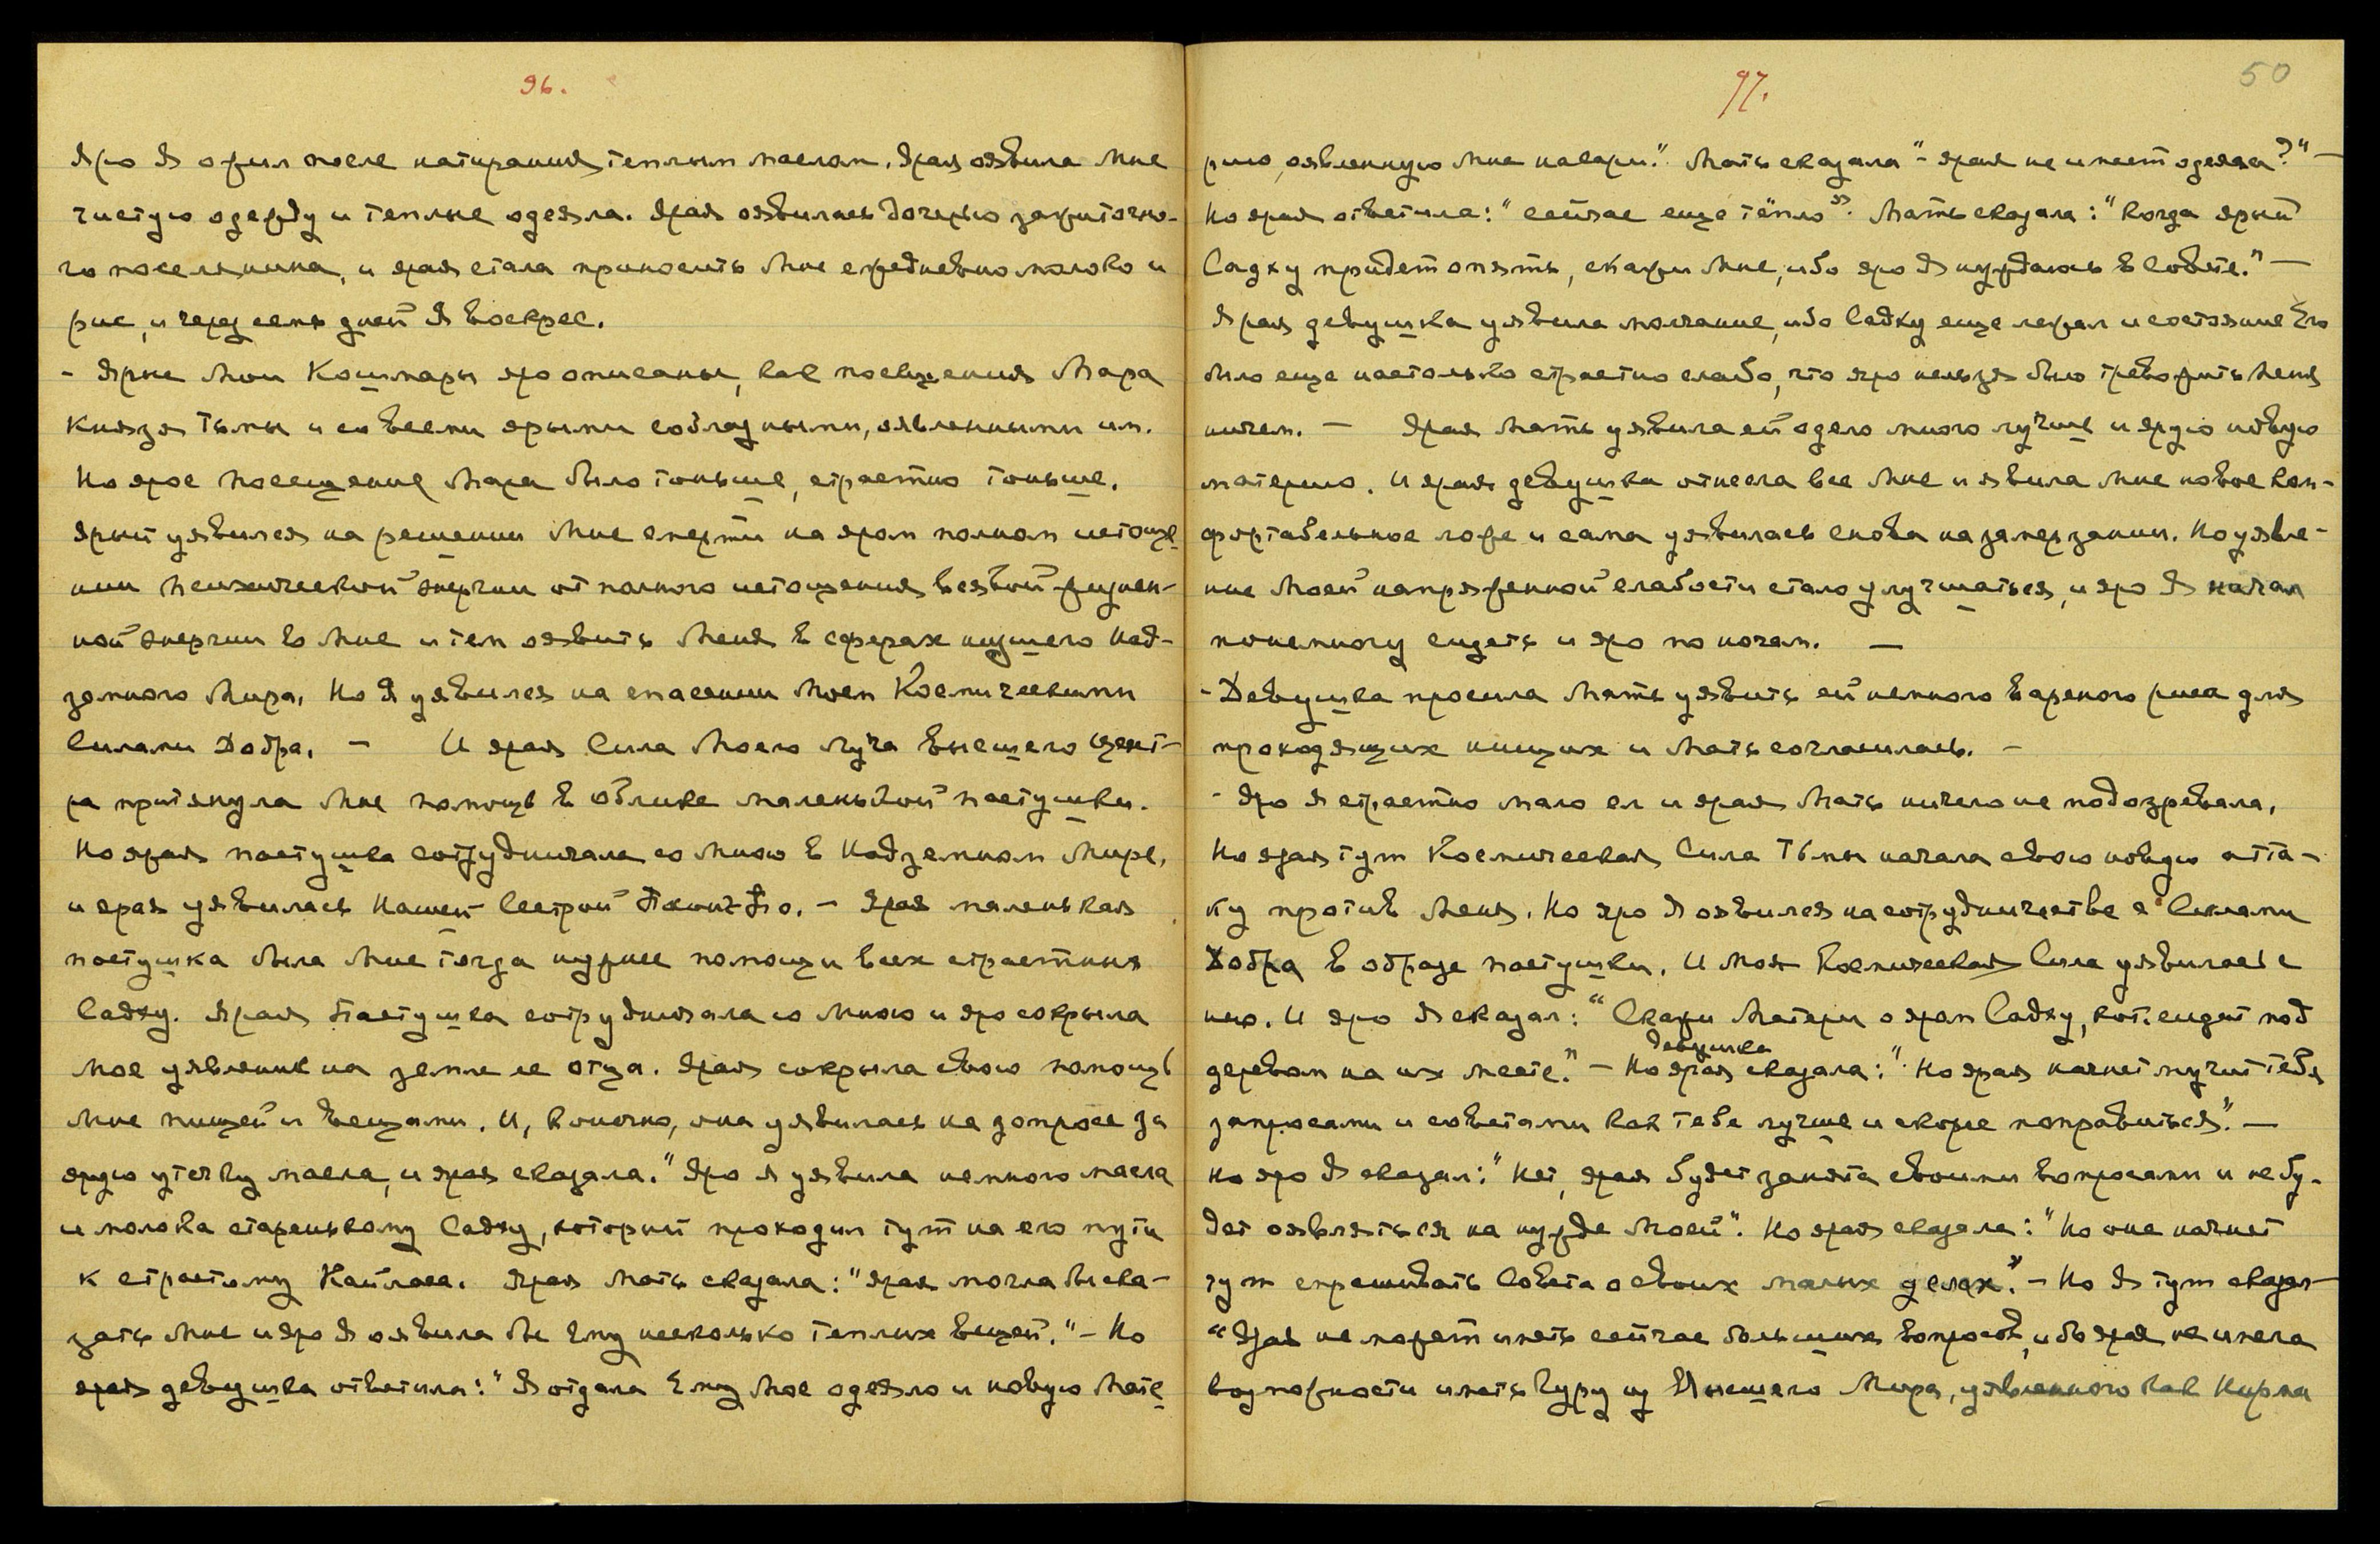 96.
Яро Я ожил после натирания теплым маслом. Ярая оявила Мне
чистую одежду и теплые одеяла. Ярая оявилась дочерью зажиточно-
го поселянина, и ярая стала приносить Мне ежедневно молоко и
рис, и через семь дней Я воскрес.
- Ярые Мои Кошмары яро описаны, как посещения Мара
Князя Тьмы и со всеми ярыми соблазнами, явленными им.
Но ярое посещение Мары было тоньше, страстно тоньше.
Ярый уявился на решении Мне смерти на яром полном истоще
нии психической энергии от полного истощения всякой жизнен-
ной энергии во Мне и тем оявить Меня в сферах низшего Над-
земного Мира. Но Я уявился на спасении Моем Космическими
Силами Добра. - И ярая Сила Моего Луча Высшего Цент-
ра притянула Мне помощь в облике маленькой пастушки.
Но ярая пастушка сотрудничала со Мною в Надземном Мире,
и ярая уявилась Нашей Сестрой. - Ярая маленькая
пастушка была Мне тогда нужнее помощи всех страстных
Садху. Ярая Пастушка сотрудничала со Мною и яро сокрыла
Мое уявление на земле ее отца. Ярая сокрыла свою помощь
Мне пищей и вещами. И, конечно, она уявилась на допросе за
ярую утечку масла, и ярая сказала. "Яро я уявила немного масла
и молока старенькому Садху, который проходил тут на его пути
к страстному Кайласа. Ярая Мать сказала: "ярая могла бы ска-
зать Мне и яро Я оявила бы Ему несколько теплых вещей." - Но
ярая девушка ответила: "Я отдала Ему Мое одеяло и новую Мате
97.
50
рию, оявленную Мне на сари." Мать сказала "- ярая не имеет одеяла?" -
Но ярая ответила: "сейчас еще тёпло". Мать сказала: "когда ярый
Садху придет опять, скажи Мне, ибо яро Я нуждаюсь в Совете." -
Ярая девушка уявила молчание, ибо Садху еще лежал и состояние Его
было еще настолько страстно слабо, что яро нельзя было тревожить Меня
ничем. - Ярая Мать уявила ей одеяло много лучше и ярую новую
материю. И ярая девушка отнесла все Мне и явила Мне новое ком-
фортабельное ложе и сама уявилась снова на замерзании. Но уявле-
ние Моей напряженной слабости стало улучшаться, и яро Я начал
понемногу сидеть и яро по ночам. -
- Девушка просила Мать уявить ей немного вареного риса для
проходящих нищих и Мать согласилась. -
- Яро Я страстно мало ел и ярая Мать ничего не подозревала.
Но ярая тут Космическая Сила Тьмы начала свою новую атта-
ку против Меня. Но яро Я оявился на сотрудничестве с Силами
Добра в образе пастушки. И Моя Космическая Сила уявилась с
нею. И яро Я сказал: "Скажи Матери о яром Садху, кот. сидит под
деревом на их месте." - Но ярая девушка сказала: "Но ярая начнет мучит Тебя
запросами и советами как Тебе лучше и скорее поправиться". -
Но яро Я сказал: "Нет, ярая будет занята своими вопросами и не бу-
дет оявляться на нужде Моей". Но ярая сказала: "Но она начнет
тут спрашивать Совета о своих малых делах". - Но Я тут сказал -
"Ярая не может иметь сейчас больших вопросов, ибо ярая не имела
возможности иметь Гуру из Высшего Мира, уявленного как Нирма